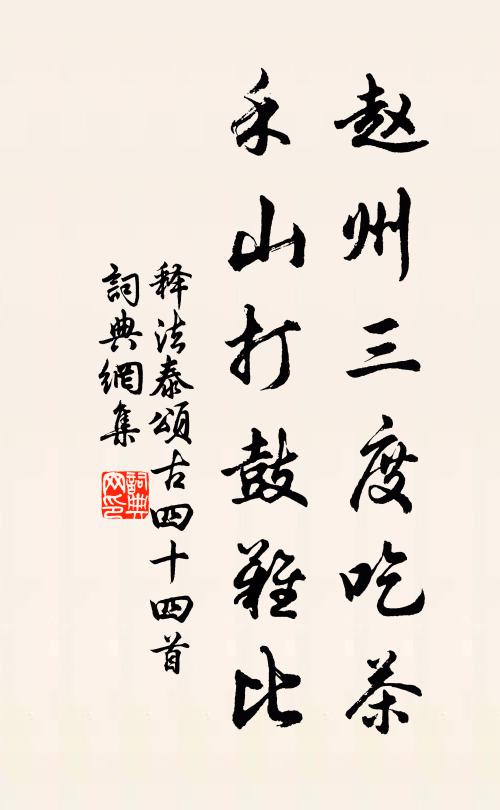 赵州三度吃茶
禾山打鼓难比
释法泰頌古四十四首
詞典網集
詞典网印